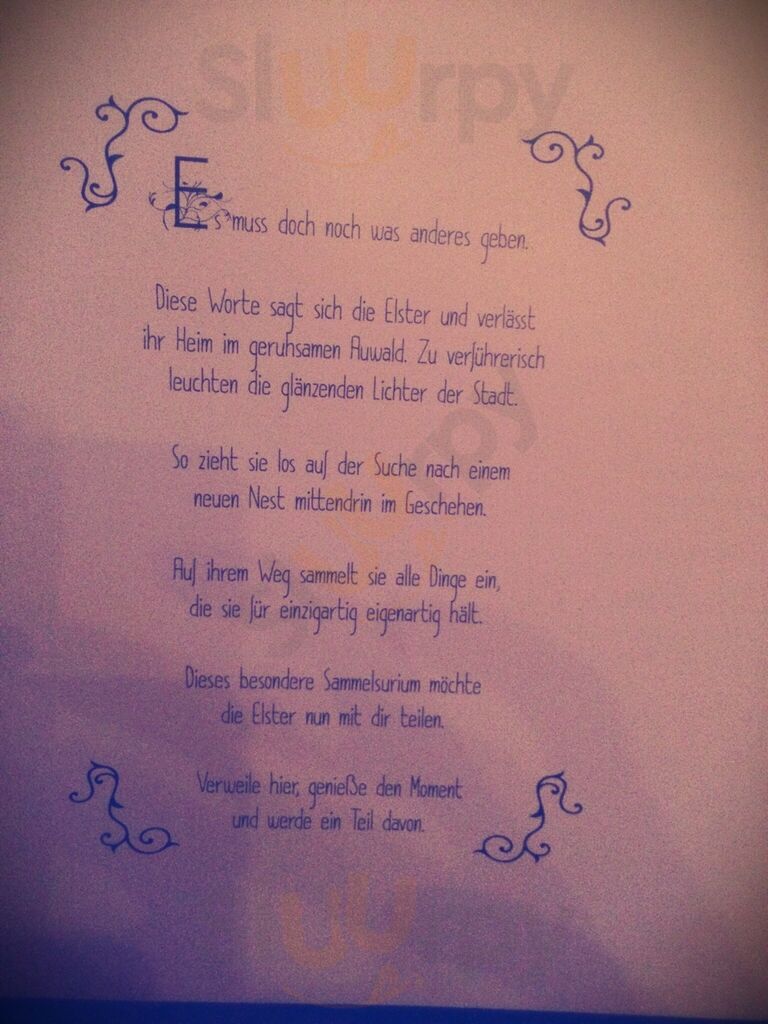 Sluurpy
Es muss doch noch was anderes geben.
Diese Worte sagt sich die Elster und verlässt
ihr Heim im geruhsamen Auwald. Zu verführerisch
leuchten die glänzenden Lichter der Stadt.
So zieht sie los auf der Suche nach einem
neuen Nest mittendrin im Geschehen.
Auf ihrem Weg sammelt sie alle Dinge ein,
die sie für einzigartig eigenartig hält.
Dieses besondere Sammelsurium möchte
die Elster nun mit dir teilen.
Verweile hier, genieße den Moment
und werde ein Teil davon.